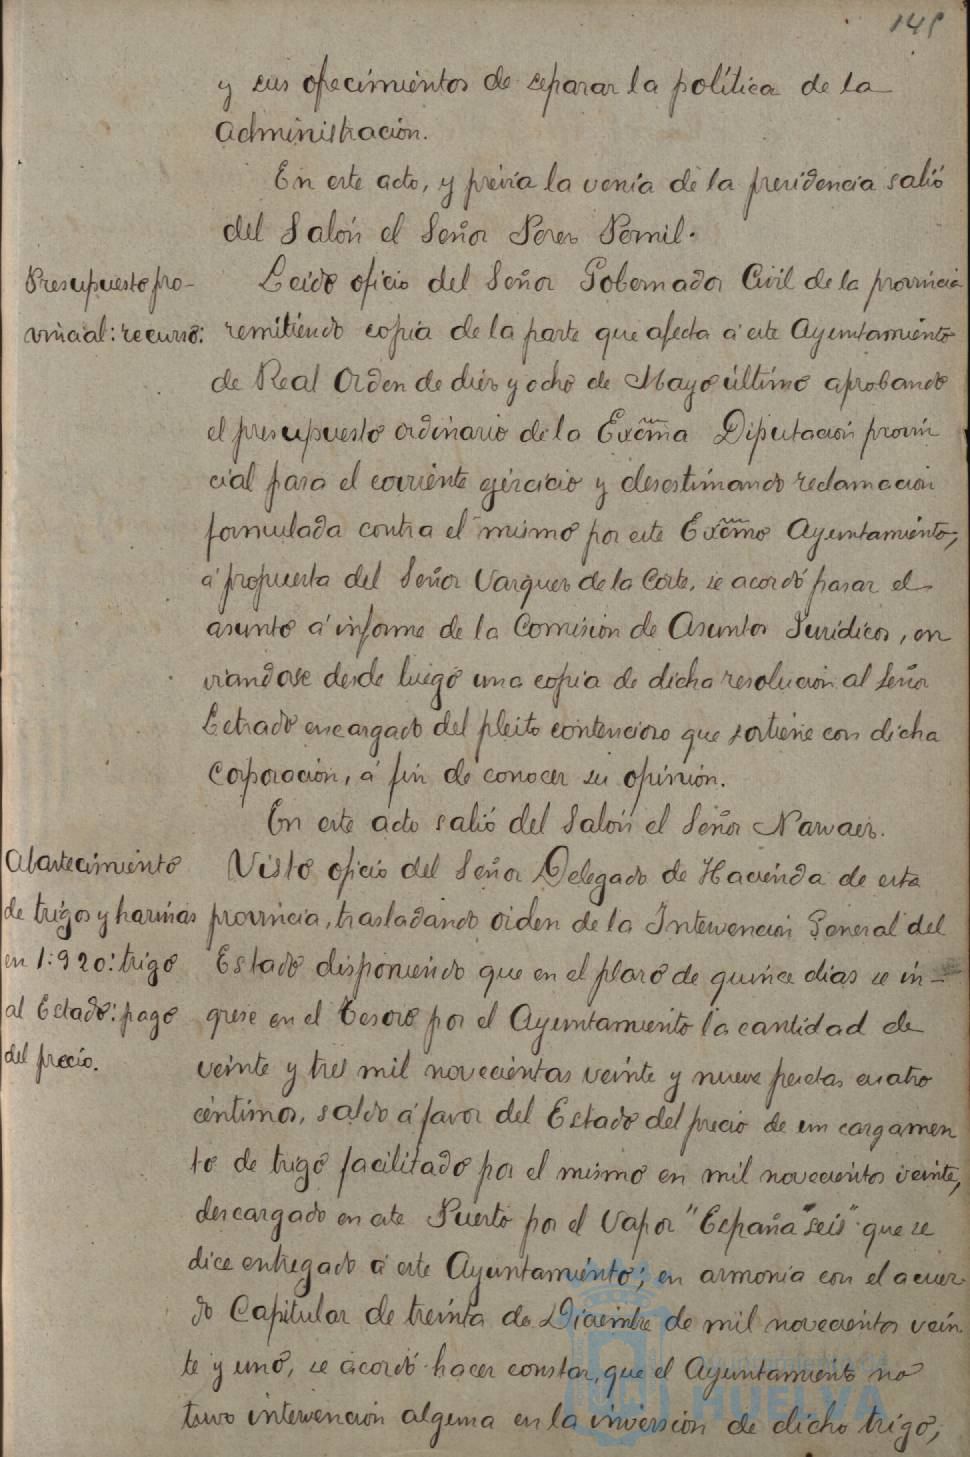 149
y sus ofrecimientos de separar la política de la
Administración.
En este acto, y previa la venia de la presidencia salió
del Salón el Señor Perez Pomil.
Presupuesto pro-
vincial: recurso:
Leido oficio del Señor Gobernador Civil de la provincia
remitiendo copia de la parte que afecta á este Ayuntamiento
de Real Orden de diez y ocho de Mayo último aprobando
el presupuesto ordinario de la Excma Diputación provin
cial para el corriente ejercicio y desestimando reclamacion
formulada contra el mismo por este Excmo Ayuntamiento,
á propuesta del Señor Vazquez de la Corte, se acordó pasar el
asunto á informe de la Comisión de Asuntos Jurídicos, en
viandose desde luego una copia de dicha resolución al Señor
Letrado encargado del pleito contencioso que sostiene con dicha
Corporación, á fin de conocer su opinión.
En este acto salió del Salón el Señor Narvaez.
Abastecimiento
de trigos y harinas
en 1:920: trigo
al Estado: pago
del precio.
Visto oficio del Señor Delegado de Hacienda de esta
provincia, trasladando orden de la Intervencion General del
Estado disponiendo que en el plazo de quince dias se in-
grese en el Tesoro por el Ayuntamiento la cantidad de
veinte y tres mil novecientas veinte y nueve pesetas cuatro
céntimos, saldo á favor del Estado del precio de un cargamen
to de trigo facilitado por el mismo en mil novecientos veinte,
descargado en este Puerto por el Vapor "España seis" que se
dice entregado á este Ayuntamiento; en armonia con el acuer
do Capitular de treinta de Diciembre de mil novecientos vein
te y uno, se acordó hacer constar, que el Ayuntamiento no
tuvo intervención alguna en la inversión de dicho trigo,
Ayuntamiento de
HUELVA